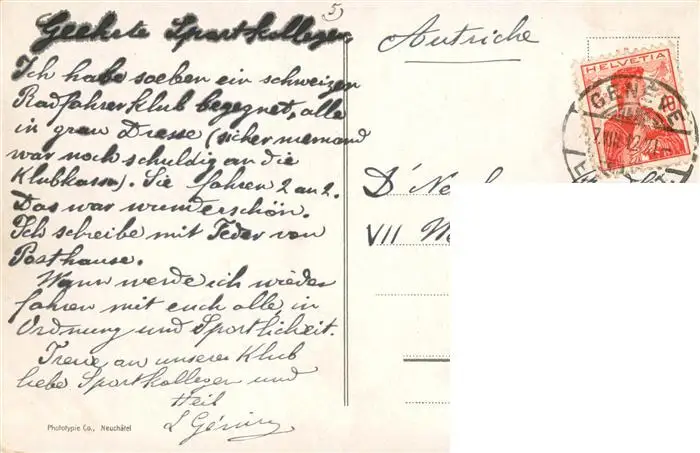 5
Geehrte Sportkollegen
Ich habe soeben ein schweizer
Radfahrer Klub begegnet, alle
in grau Dresse (sicher niemand
war noch schuldig an die
Klubkassa). Sie fahren 2 an 2.
Das war wunderschön.
Ich schreibe mit Feder von
Posthause.
Wann werde ich wieder
fahren mit euch alle, in
Ordnung und Sportlicheit.
Treue an unserer Klub
liebe Sportkollegen und
Heil
Phototypie Co., Neuchâtel
Autriche
HELVETIA
GENÈVE
Dr
VII